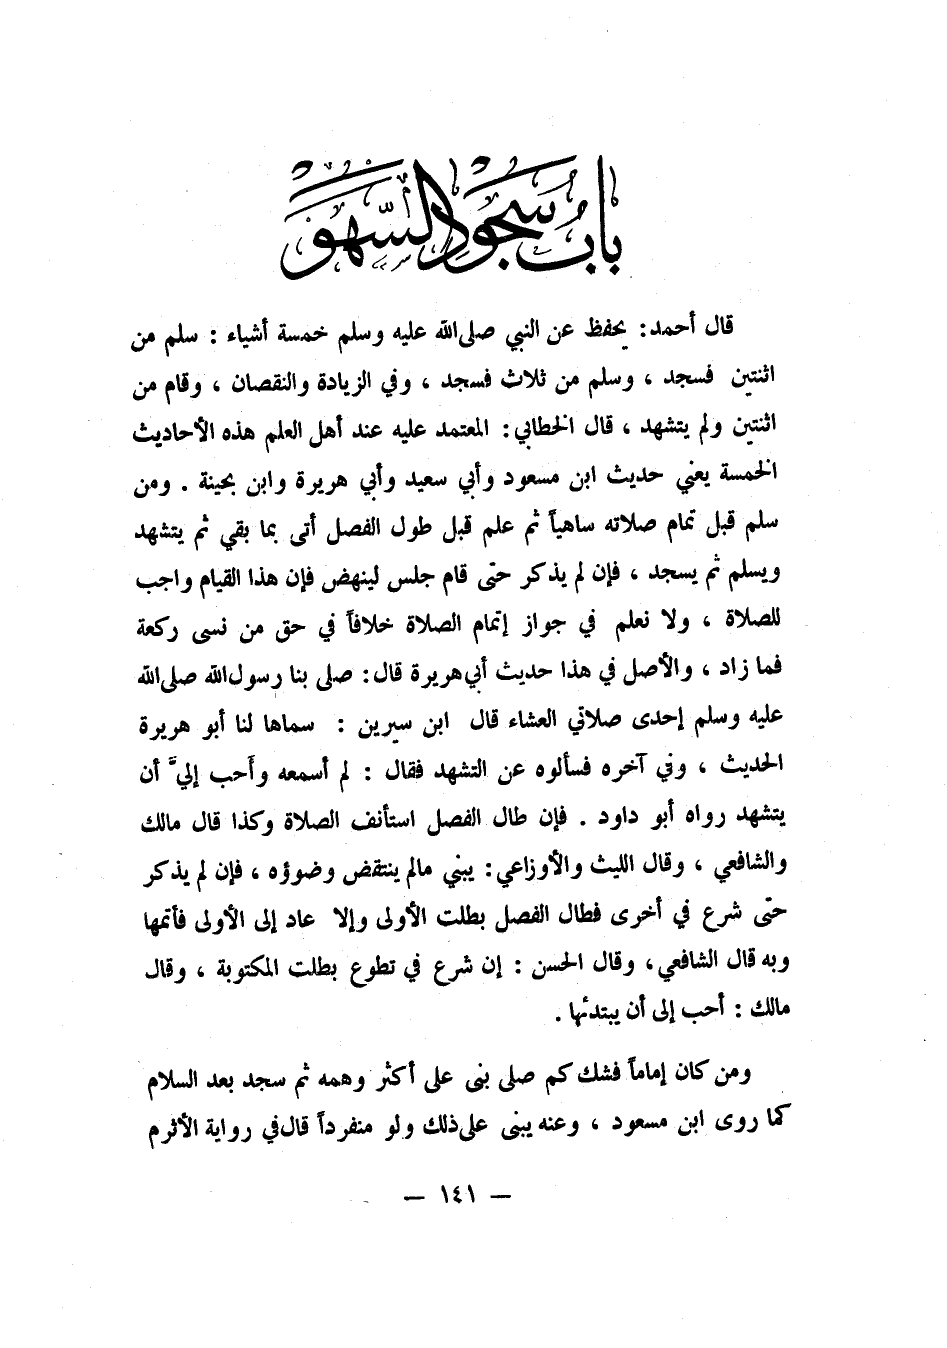 باب سجود السهو
قال أحمد: يحفظ عن النبي صلى الله عليه وسلم خمسة أشياء : سلم من
اثنتين فسجد ، وسلم من ثلاث فسجد ، وفي الزيادة والنقصان ، وقام من
اثنتين ولم يتشهد ، قال الخطابي : المعتمد عليه عند أهل العلم هذه الأحاديث
الخمسة يعني حديث ابن مسعود وأبي سعيد وأبي هريرة وابن بحينة . ومن
سلم قبل تمام صلاته ساهياً ثم علم قبل طول الفصل أتى بما بقي ثم يتشهد
ويسلم ثم يسجد ، فإن لم يذكر حتى قام جلس لينهض فإن هذا القيام واجب
للصلاة ، ولا نعلم في جواز إتمام الصلاة خلافاً في حق من نسى ركعة
فما زاد ، والأصل في هذا حديث أبي هريرة قال : صلى بنا رسول الله صلى الله
عليه وسلم إحدى صلاتي العشاء قال ابن سيرين : سماها لنا أبو هريرة
الحديث ، وفي آخره فسألوه عن التشهد فقال : لم أسمعه وأحب إليَّ أن
يتشهد رواه أبو داود . فإن طال الفصل استأنف الصلاة وكذا قال مالك
والشافعي ، وقال الليث والأوزاعي : يبني مالم ينتقض وضوؤه ، فإن لم يذكر
حتى شرع في أخرى فطال الفصل بطلت الأولى وإلا عاد إلى الأولى فأتمها
وبه قال الشافعي ، وقال الحسن : إن شرع في تطوع بطلت المكتوبة ، وقال
مالك : أحب إلى أن يبتدئها .
ومن كان إماماً فشك كم صلى بنى على أكثر وهمه ثم سجد بعد السلام
كما روى ابن مسعود ، وعنه يبنى على ذلك ولو منفرداً قال في رواية الأثرم
— ١٤١ —